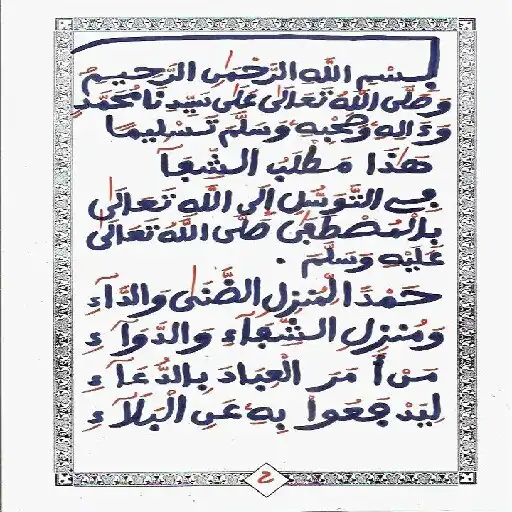 بِسْمِ اللَّهِ الرَّحْمَٰنِ الرَّحِيمِ
وَصَلَّى اللَّهُ تَعَالَىٰ عَلَىٰ سَيِّدِنَا مُحَمَّدٍ
وَءَالِهِ وَصَحْبِهِ وَسَلَّمَ تَسْلِيمًا
هَٰذَا مَطْلَبُ الشِّفَآ
فِي التَّوَسُّلِ إِلَى اللَّهِ تَعَالَىٰ
بِالْمُصْطَفَىٰ صَلَّى اللَّهُ تَعَالَىٰ
عَلَيْهِ وَسَلَّمَ .
حَمْدًا لِمُنْزِلِ الضَّنَىٰ وَالدَّآءِ
وَمُنْزِلِ الشِّفَآءِ وَالدَّوَآءِ
مَنْ أَمَرَ الْعِبَادَ بِالدُّعَآءِ
لِيَدْفَعُواْ بِهِ عَنِ الْبَلَآءِ